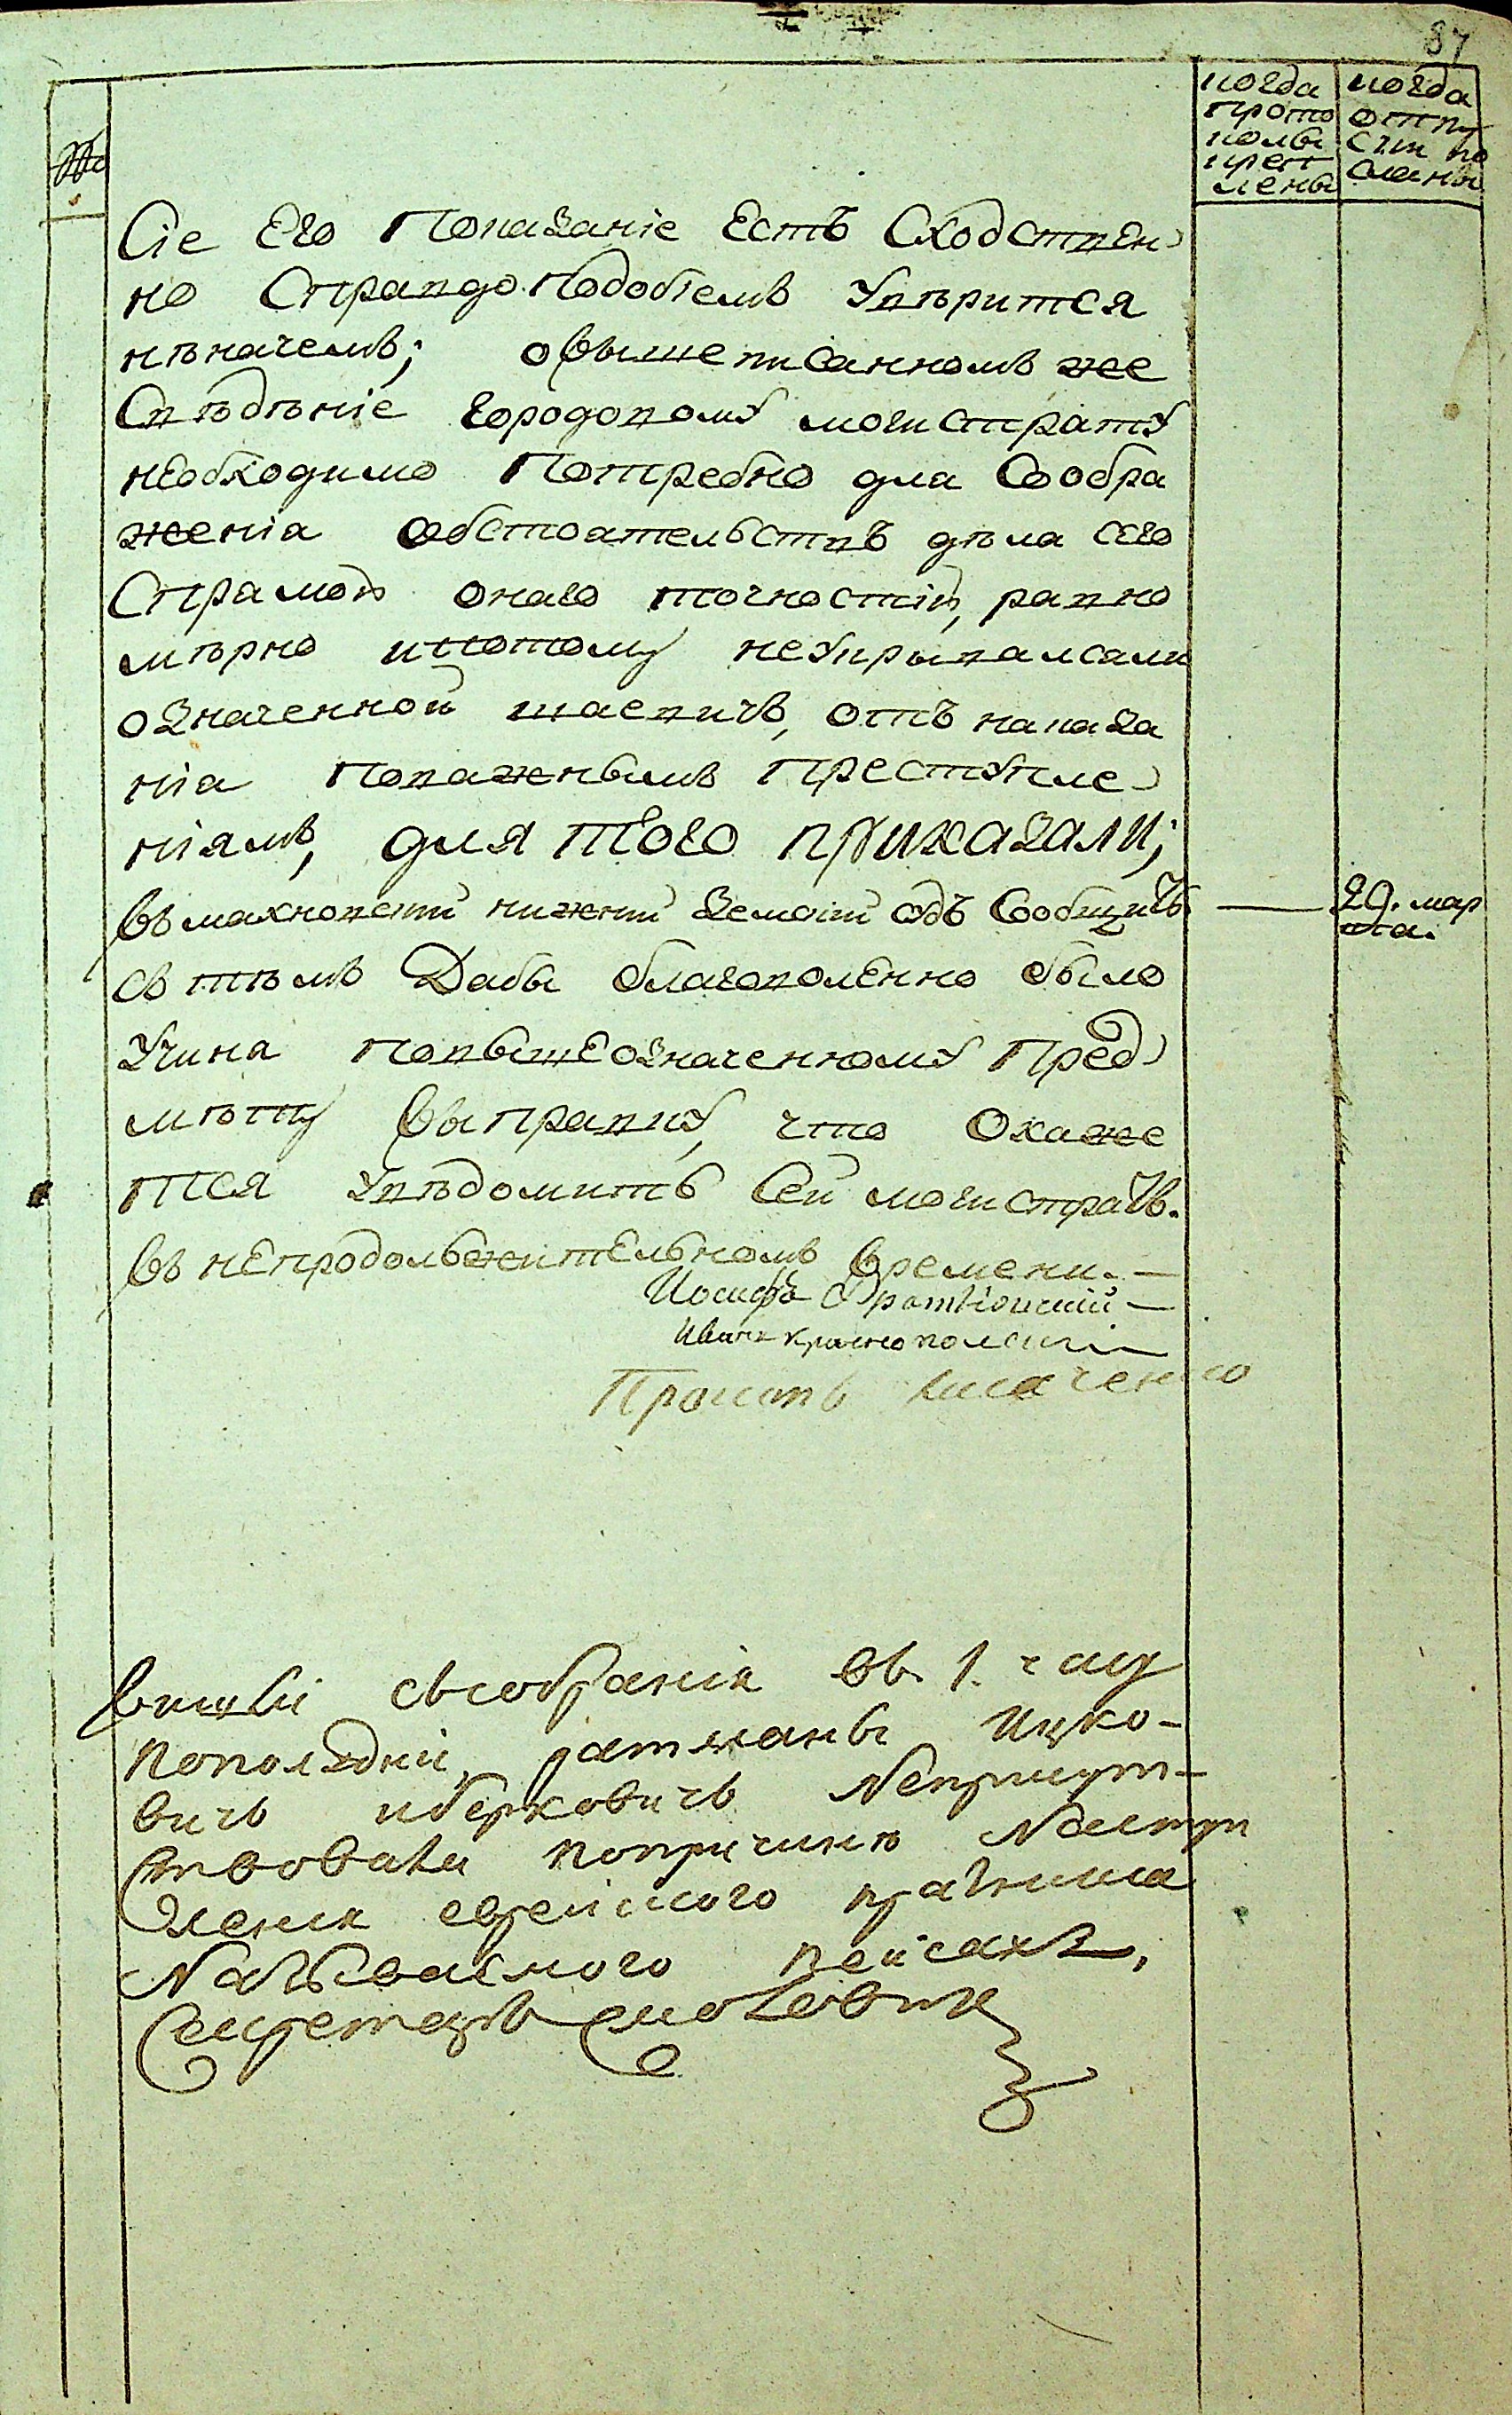 87
№
когда
прото
колы
креп
лены
когда
отпу
ски по
сланы
Сіе Его Показаніе Естъ Сходствен
но Справдо Подобіемъ Увѣрится
нѣначемъ; овышеписанномъ же
Свѣдѣніе городовому могистрату
нЕобходимо Потребно для Сообра
женія Обстоятельствъ дѣла сего
Спрамой онаго точностій, равно
мѣрно ипотому неукрывалсяли
означенной шаевичъ, отъ наказа
нія Поважнымъ Преступле
ніямъ, для того приказали;
Въ махновский нижний Земский судъ Сообщить
29. мар
та.
съ тѣмъ Дабы благоволенно было
Учина Повышеозначенному Пред
мѣту Выправку, что Окаже
тся Увѣдомить Сей могистратъ.
Въ нЕпродольжитЕльномъ Времени. —
Иосифъ —
Иванъ краснополский
Прокопъ
Вишли съсобранія въ 1. часу
пополудни, ратманы Ицко-
вичъ иберковичъ Неприсут-
ствовали попричинѣ Наступ
ления еврейского празника
Называемого пейсахъ,
Секретаръ